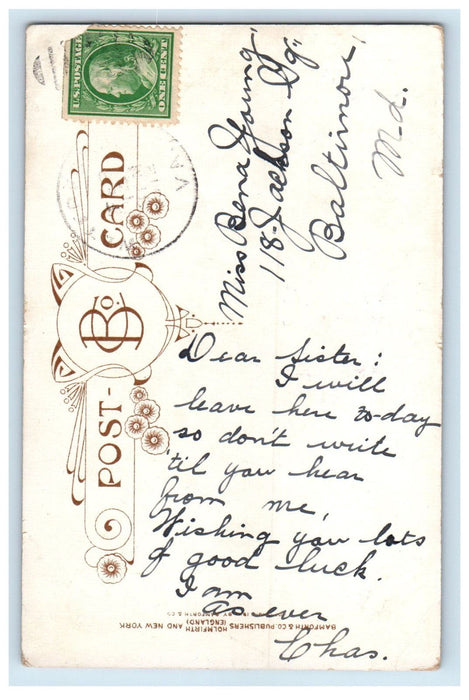 U.S. POSTAGE
ONE CENT
VA.
POST-CARD
B Co.
Miss Bena Young,
118-Jackson Sq,
Baltimore,
Md.
Dear Sister:
I will
leave here to-day
so don't write
'til you hear
from me,
Wishing you lots
of good luck.
I am
as ever
Chas.
BAMFORTH & CO PUBLISHERS
HOLMFIRTH AND NEW YORK
(ENGLAND)